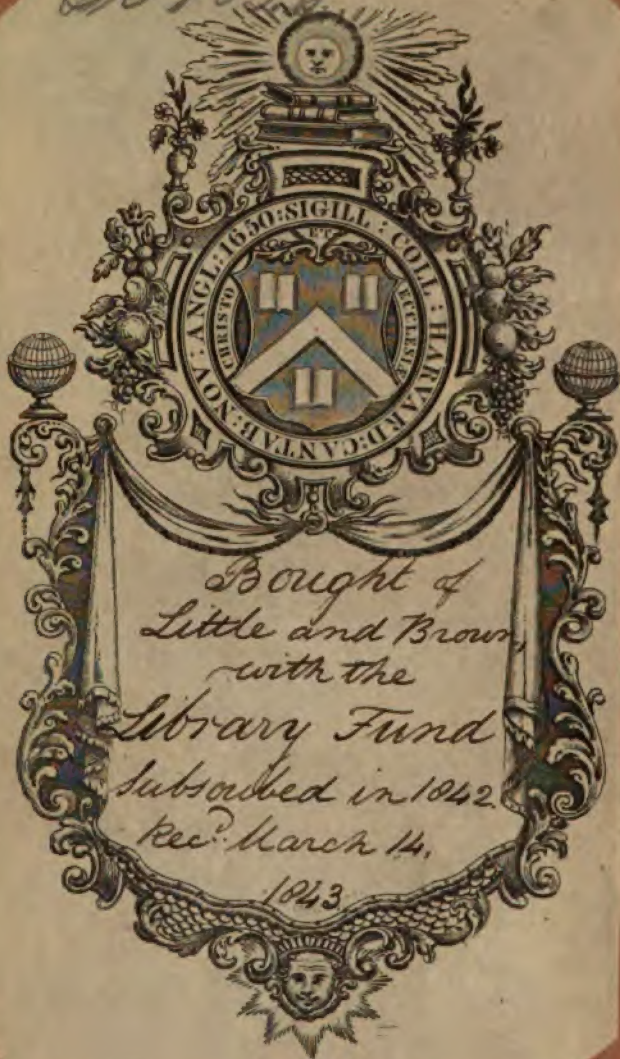 SIGILL : COLL : HARVARD : CANTAB : NOV : ANGL : 1650 :
CHRISTO
ET
ECCLESIÆ
Bought of
Little and Brown,
with the
Library Fund
subscribed in 1842.
Rec^d. March 14,
1843